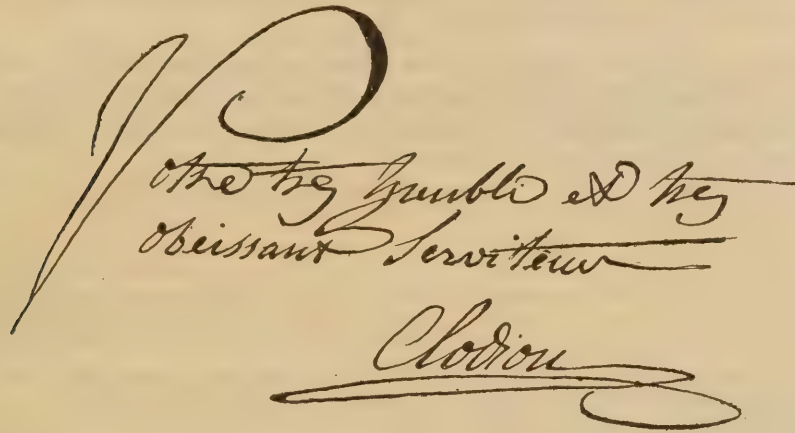 Votre tres humble et tres
obeissant Serviteur
Clodion